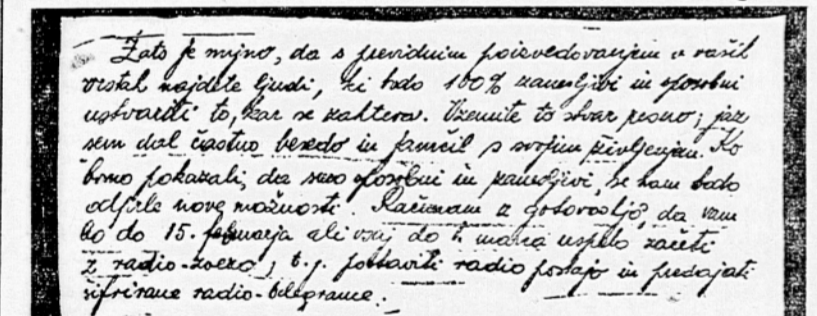 Zato je nujno, da s previdnim poizvedovanjem v vaših
vrstah najdete ljudi, ki bodo 100% zanesljivi in sposobni
ustvariti to, kar se zahteva. Vzemite to stvar resno; jaz
sem dal častno besedo in jamčil s svojim življenjem. Ko
bomo pokazali, da smo sposobni in zanesljivi, se nam bodo
odprle nove možnosti. Računam z gotovostjo, da vam
bo do 15. februarja ali vsaj do 1. marca uspelo začeti
z radio-zvezo, t.j. postaviti radio postajo in predajati
šifrirane radio-telegrame.